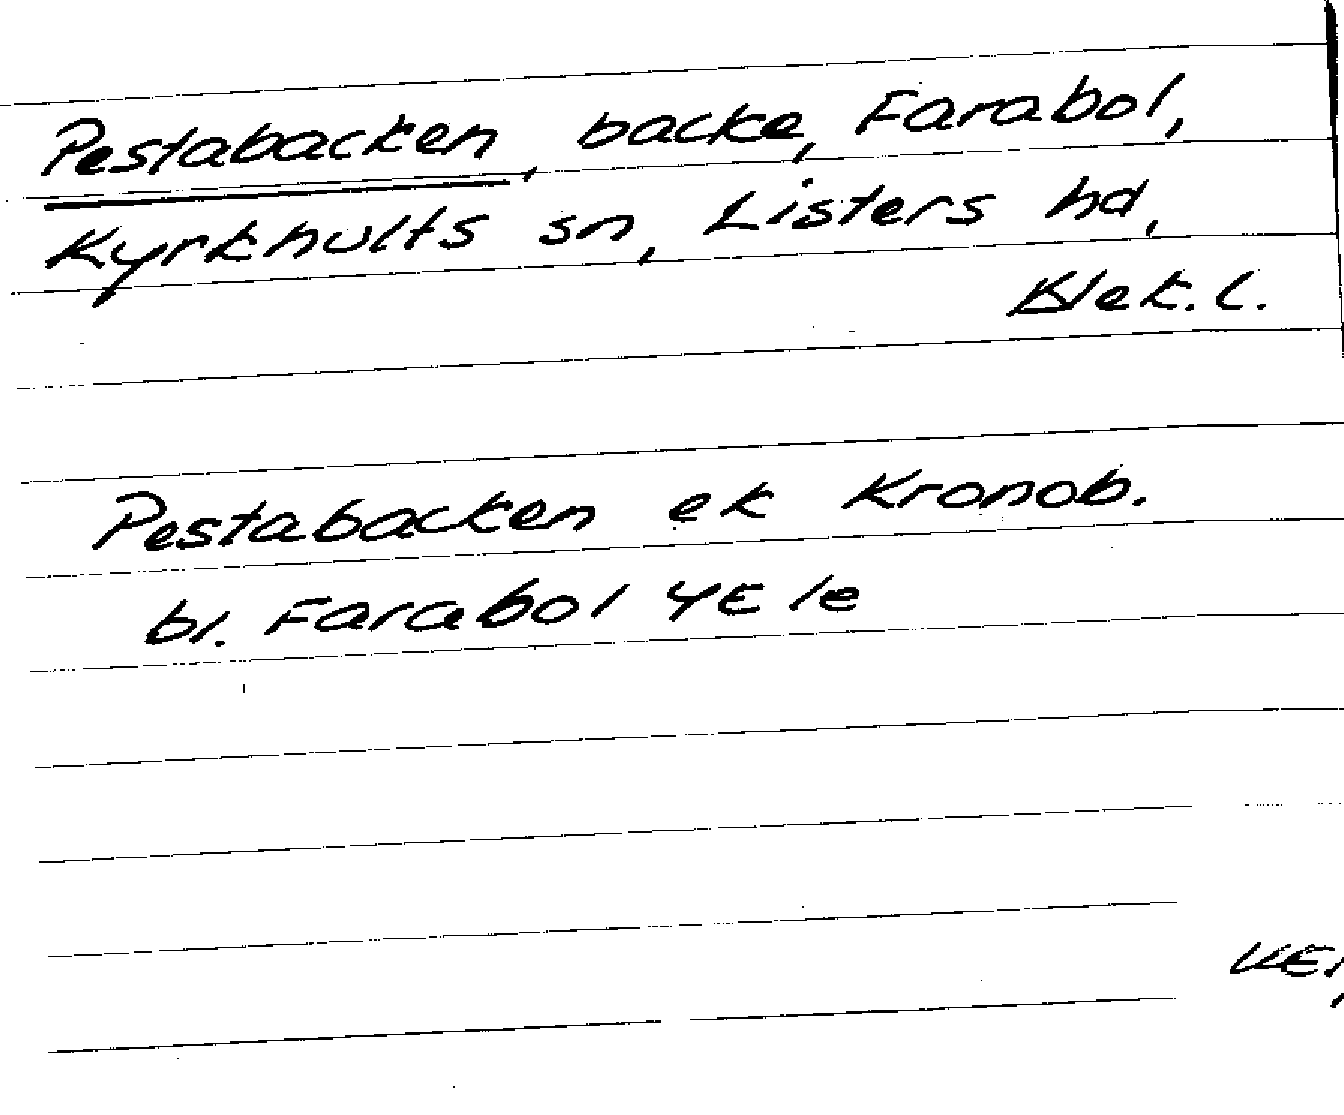 Pestabacken, backe, Farabol,
Kyrkhults sn, Listers hd,
Blek. l.
Pestabacken ek Kronob.
bl. Farabol 4E 1e